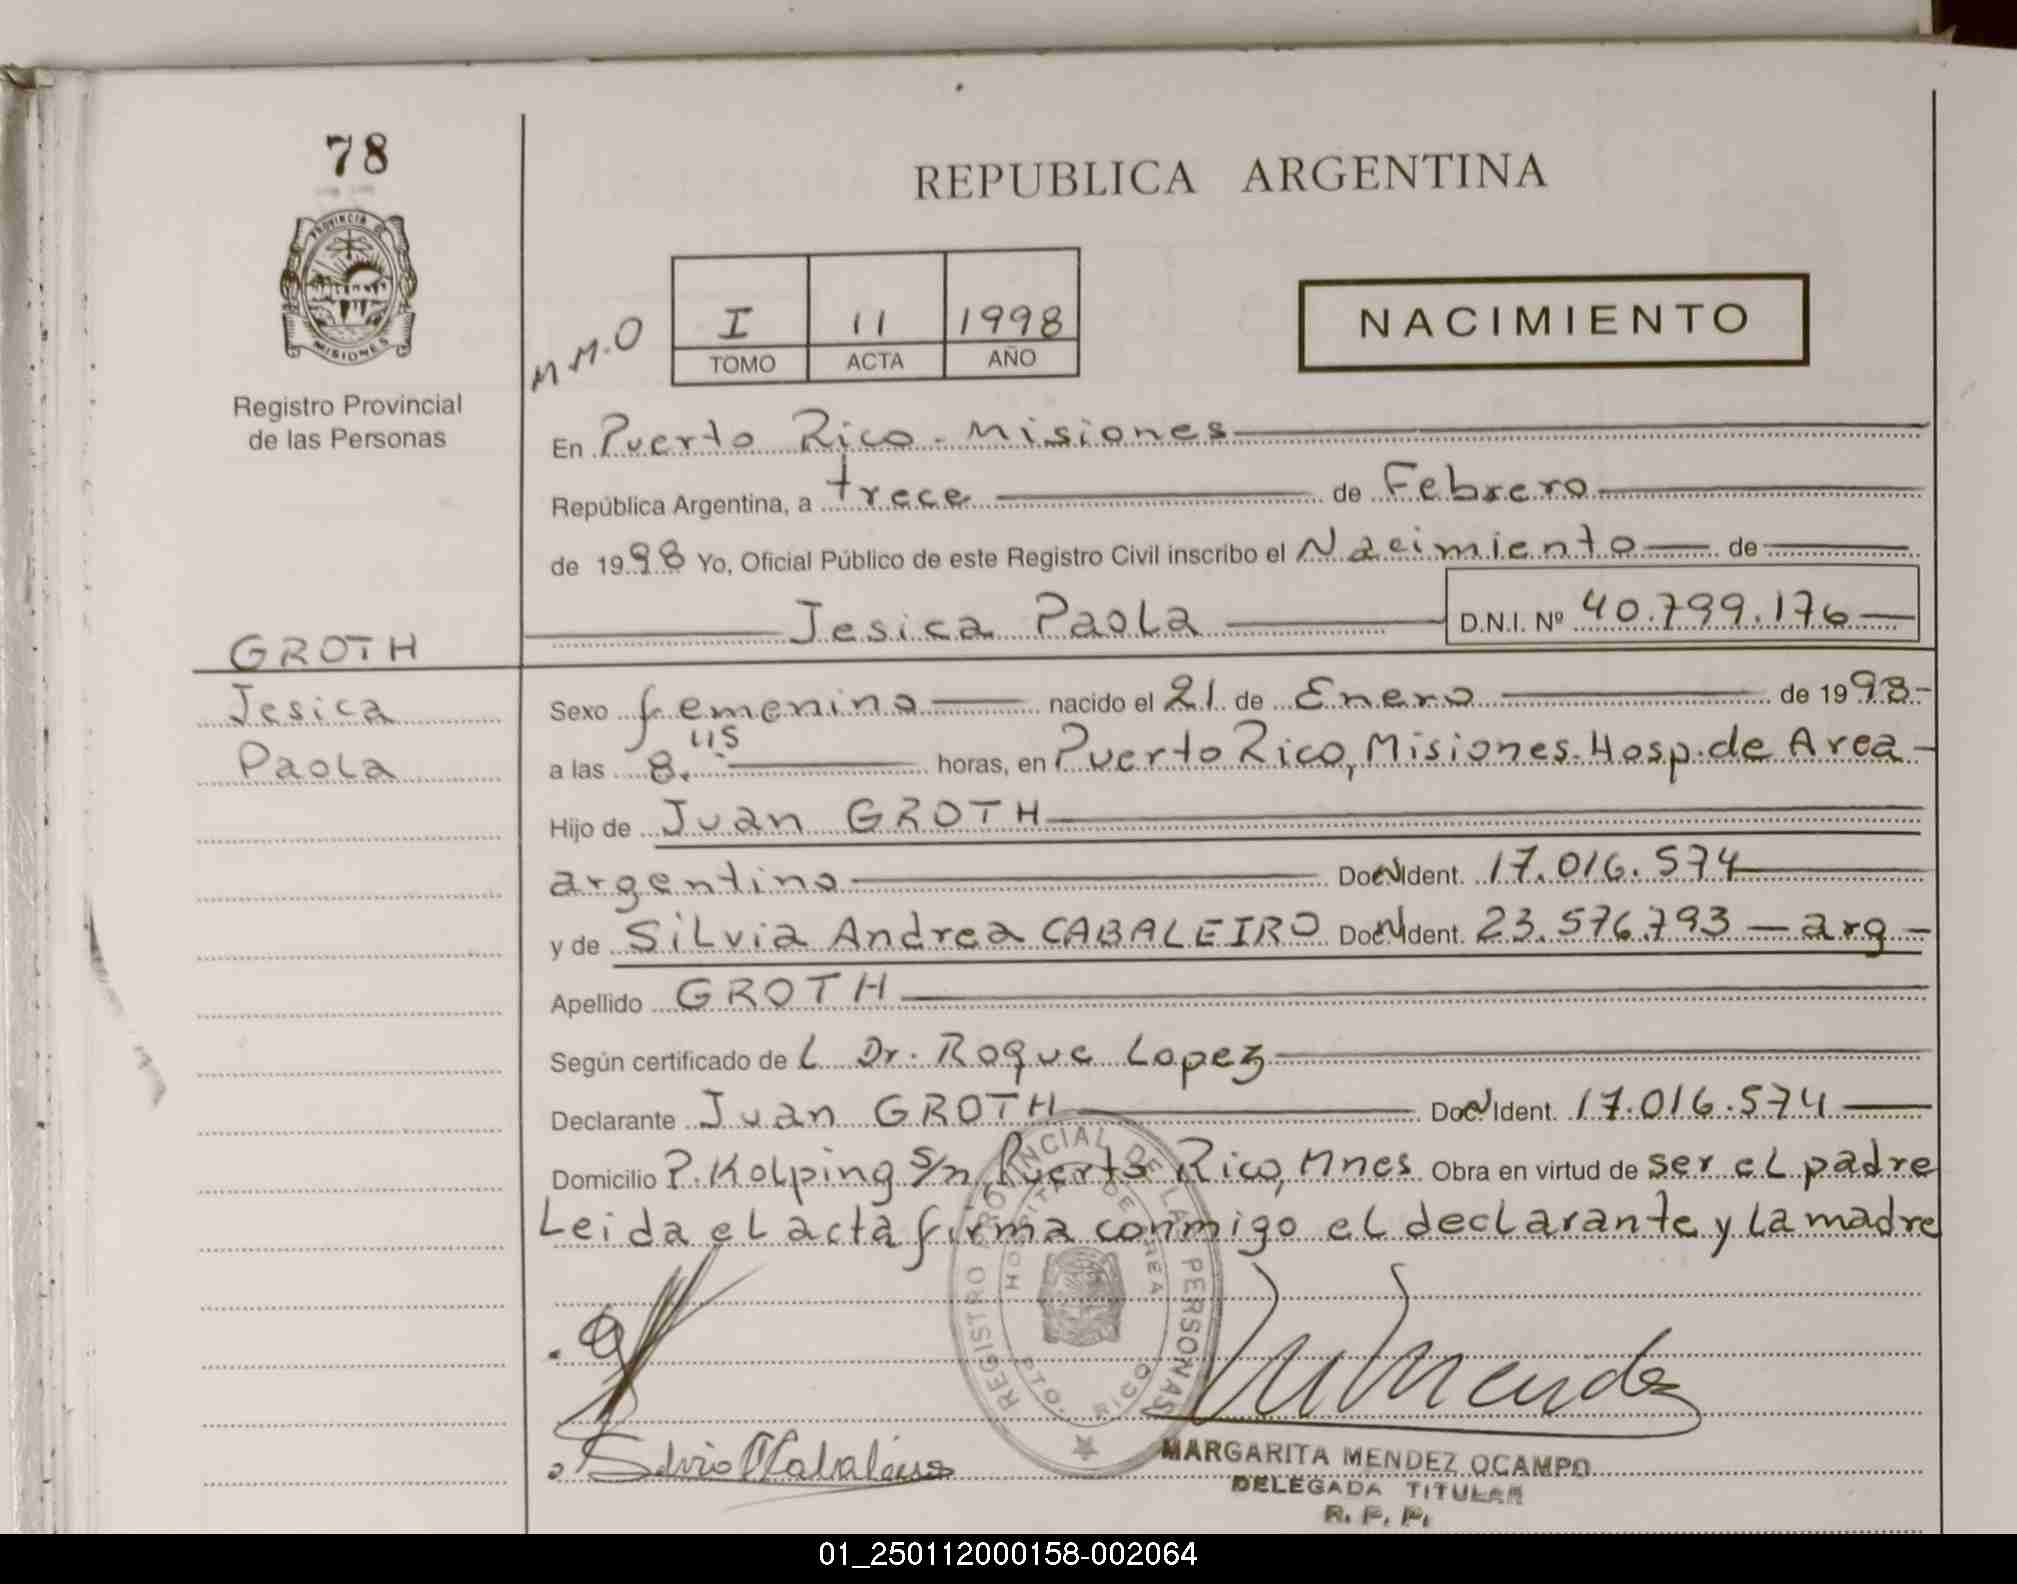 78
REPUBLICA ARGENTINA
PROVINCIA DE
MISIONES
Registro Provincial
de las Personas
M.M.O
I 11 1998
TOMO ACTA AÑO
NACIMIENTO
En Puerto Rico - Misiones
República Argentina, a trece de Febrero
de 1998 Yo, Oficial Público de este Registro Civil inscribo el Nacimiento de
Jesica Paola D.N.I. Nº 40.799.176
GROTH
Jesica
Paola
Sexo femenino nacido el 21 de Enero de 1998-
a las 8.45 horas, en Puerto Rico, Misiones. Hosp. de Area-
Hijo de Juan GROTH
argentino Doc. Ident. 17.016.574
y de Silvia Andrea CABALEIRO Doc. Ident. 23.576.793 - arg-
Apellido GROTH
Según certificado de L Dr. Roque Lopez
Declarante Juan GROTH Doc. Ident. 17.016.574
Domicilio P. Kolping s/n, Puerto Rico, Mnes Obra en virtud de ser el padre
Leida el acta firma conmigo el declarante y la madre
REGISTRO PROVINCIAL DE LAS PERSONAS
HOSPITAL DE AREA
PTO. RICO
MARGARITA MENDEZ OCAMPO
DELEGADA TITULAR
R. P. P.
01_250112000158-002064